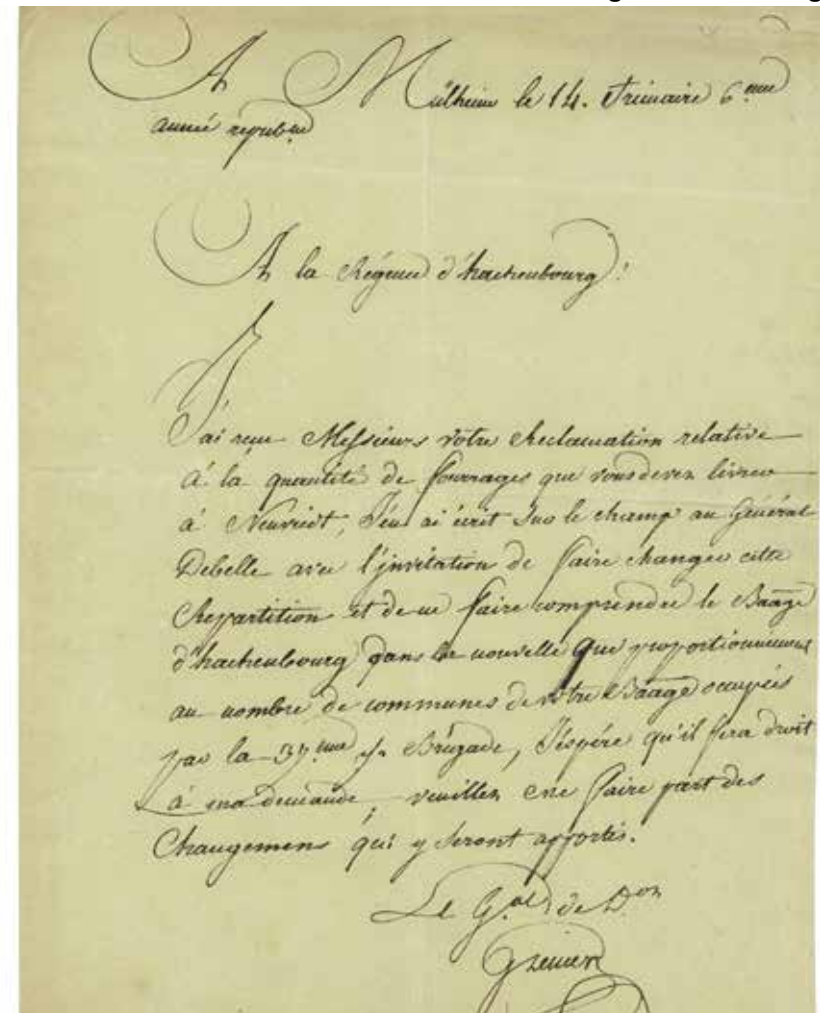 A Mülheim le 14. Frimaire 6.eme
année republ.ne
A la Régence d'hachenbourg!
J'ai reçu Messieurs votre Reclamation relative
à la quantité de fourrages que vous devez livrer
à Neuvied, J'en ai écrit sur le champ au Général
Debelle avec l'invitation de faire changer cette
Repartition et de ne faire comprendre le Baage
d'hachenbourg dans la nouvelle que proportionnement
au nombre de communes de votre Baage occupées
par la 37.eme 1/2 Brigade, J'éspére qu'il fera droit
à ma demande, veuillez me faire part des
Changemens qui y seront apportés.
Le G.al de D.on
Grenier